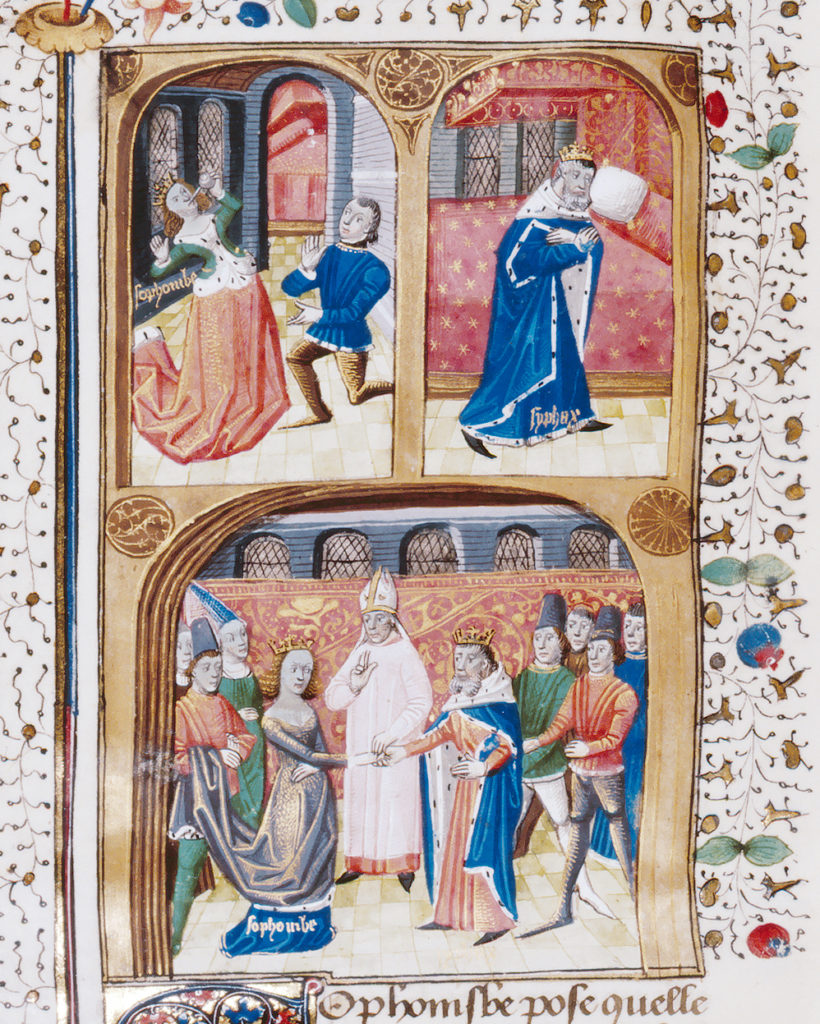 sophonibe
syphax
sophonibe
Sophonisbe pose quelle